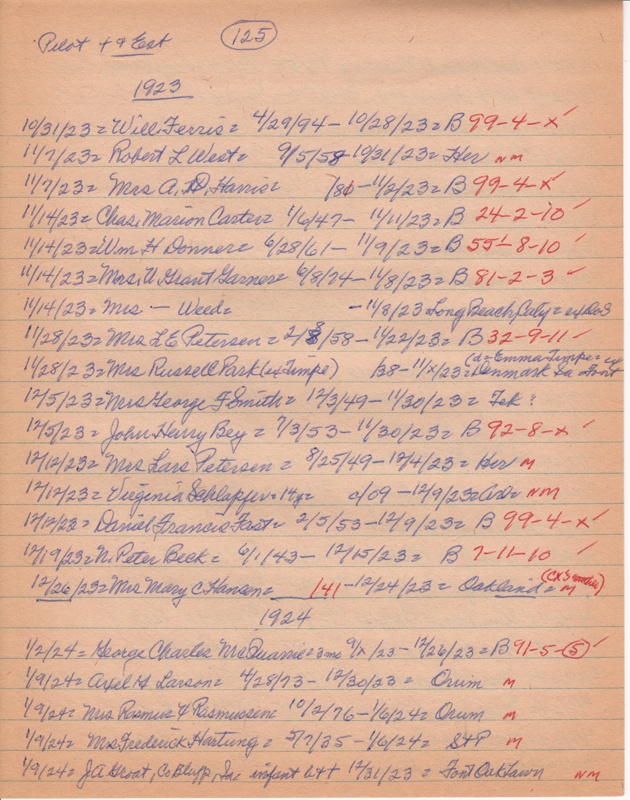 Pilot + 9 Est 125
1923
10/31/23 = Will Ferris = 4/29/94 - 10/28/23 = B 99-4-x ✓
11/7/23 = Robert L West = 9/5/58 - 10/31/23 = Her NM
11/7/23 = Mrs A. D. Harris = /80 - 11/2/23 = B 99-4-x ✓
11/14/23 = Chas. Marion Carter = 1/6/47 - 11/11/23 = B 24-2-10 ✓
11/14/23 = Wm H Donner = 6/28/61 - 11/9/23 = B 55½-8-10 ✓
11/14/23 = Mrs. U. Grant Garner = 6/8/74 - 11/8/23 = B 81-2-3 ✓
11/14/23 = Mrs — Weed = - 11/8/23 = Long Beach Calif =
11/28/23 = Mrs L E Petersen = 2/8/58 - 11/22/23 = B 32-9-11 ✓
11/28/23 = Mrs Russell Park (ex Timpe) b38 - 11/x/23 = (d = Emma Timpe = Denmark Ia
12/5/23 = Mrs George F Smith = 12/3/49 - 11/30/23 = Tek ?
12/5/23 = John Harry Bey = 7/3/53 - 11/30/23 = B 92-8-x ✓
12/12/23 = Mrs Lars Petersen = 8/25/49 - 12/4/23 = Her M
12/12/23 = Virginia Schlapfer = 14y = c/09 - 12/9/23 = NM
12/12/23 = Daniel Francis Fast = 2/5/53 - 12/9/23 = B 99-4-x ✓
12/19/23 = N. Peter Beck = 6/1/43 - 12/15/23 = B 7-11-10 ✓
12/26/23 = Mrs Mary C Hansen = /41 - 12/24/23 = Oakland = M
1924
1/2/24 = George Charles McQuanie = 3 mo 9/x/23 - 12/26/23 = B 91-5-5 ✓
1/9/24 = Axel H Larson = 4/28/73 - 12/30/23 = Orum M
1/9/24 = Mrs Rasmus Y Rasmussen = 10/2/76 - 1/6/24 = Orum M
1/9/24 = Mrs Frederick Hartung = 5/7/35 - 1/6/24 = St P M
1/9/24 = J A Groat, Co Bluff, Ia infant b + 12/31/23 = Font Oaktawn NM